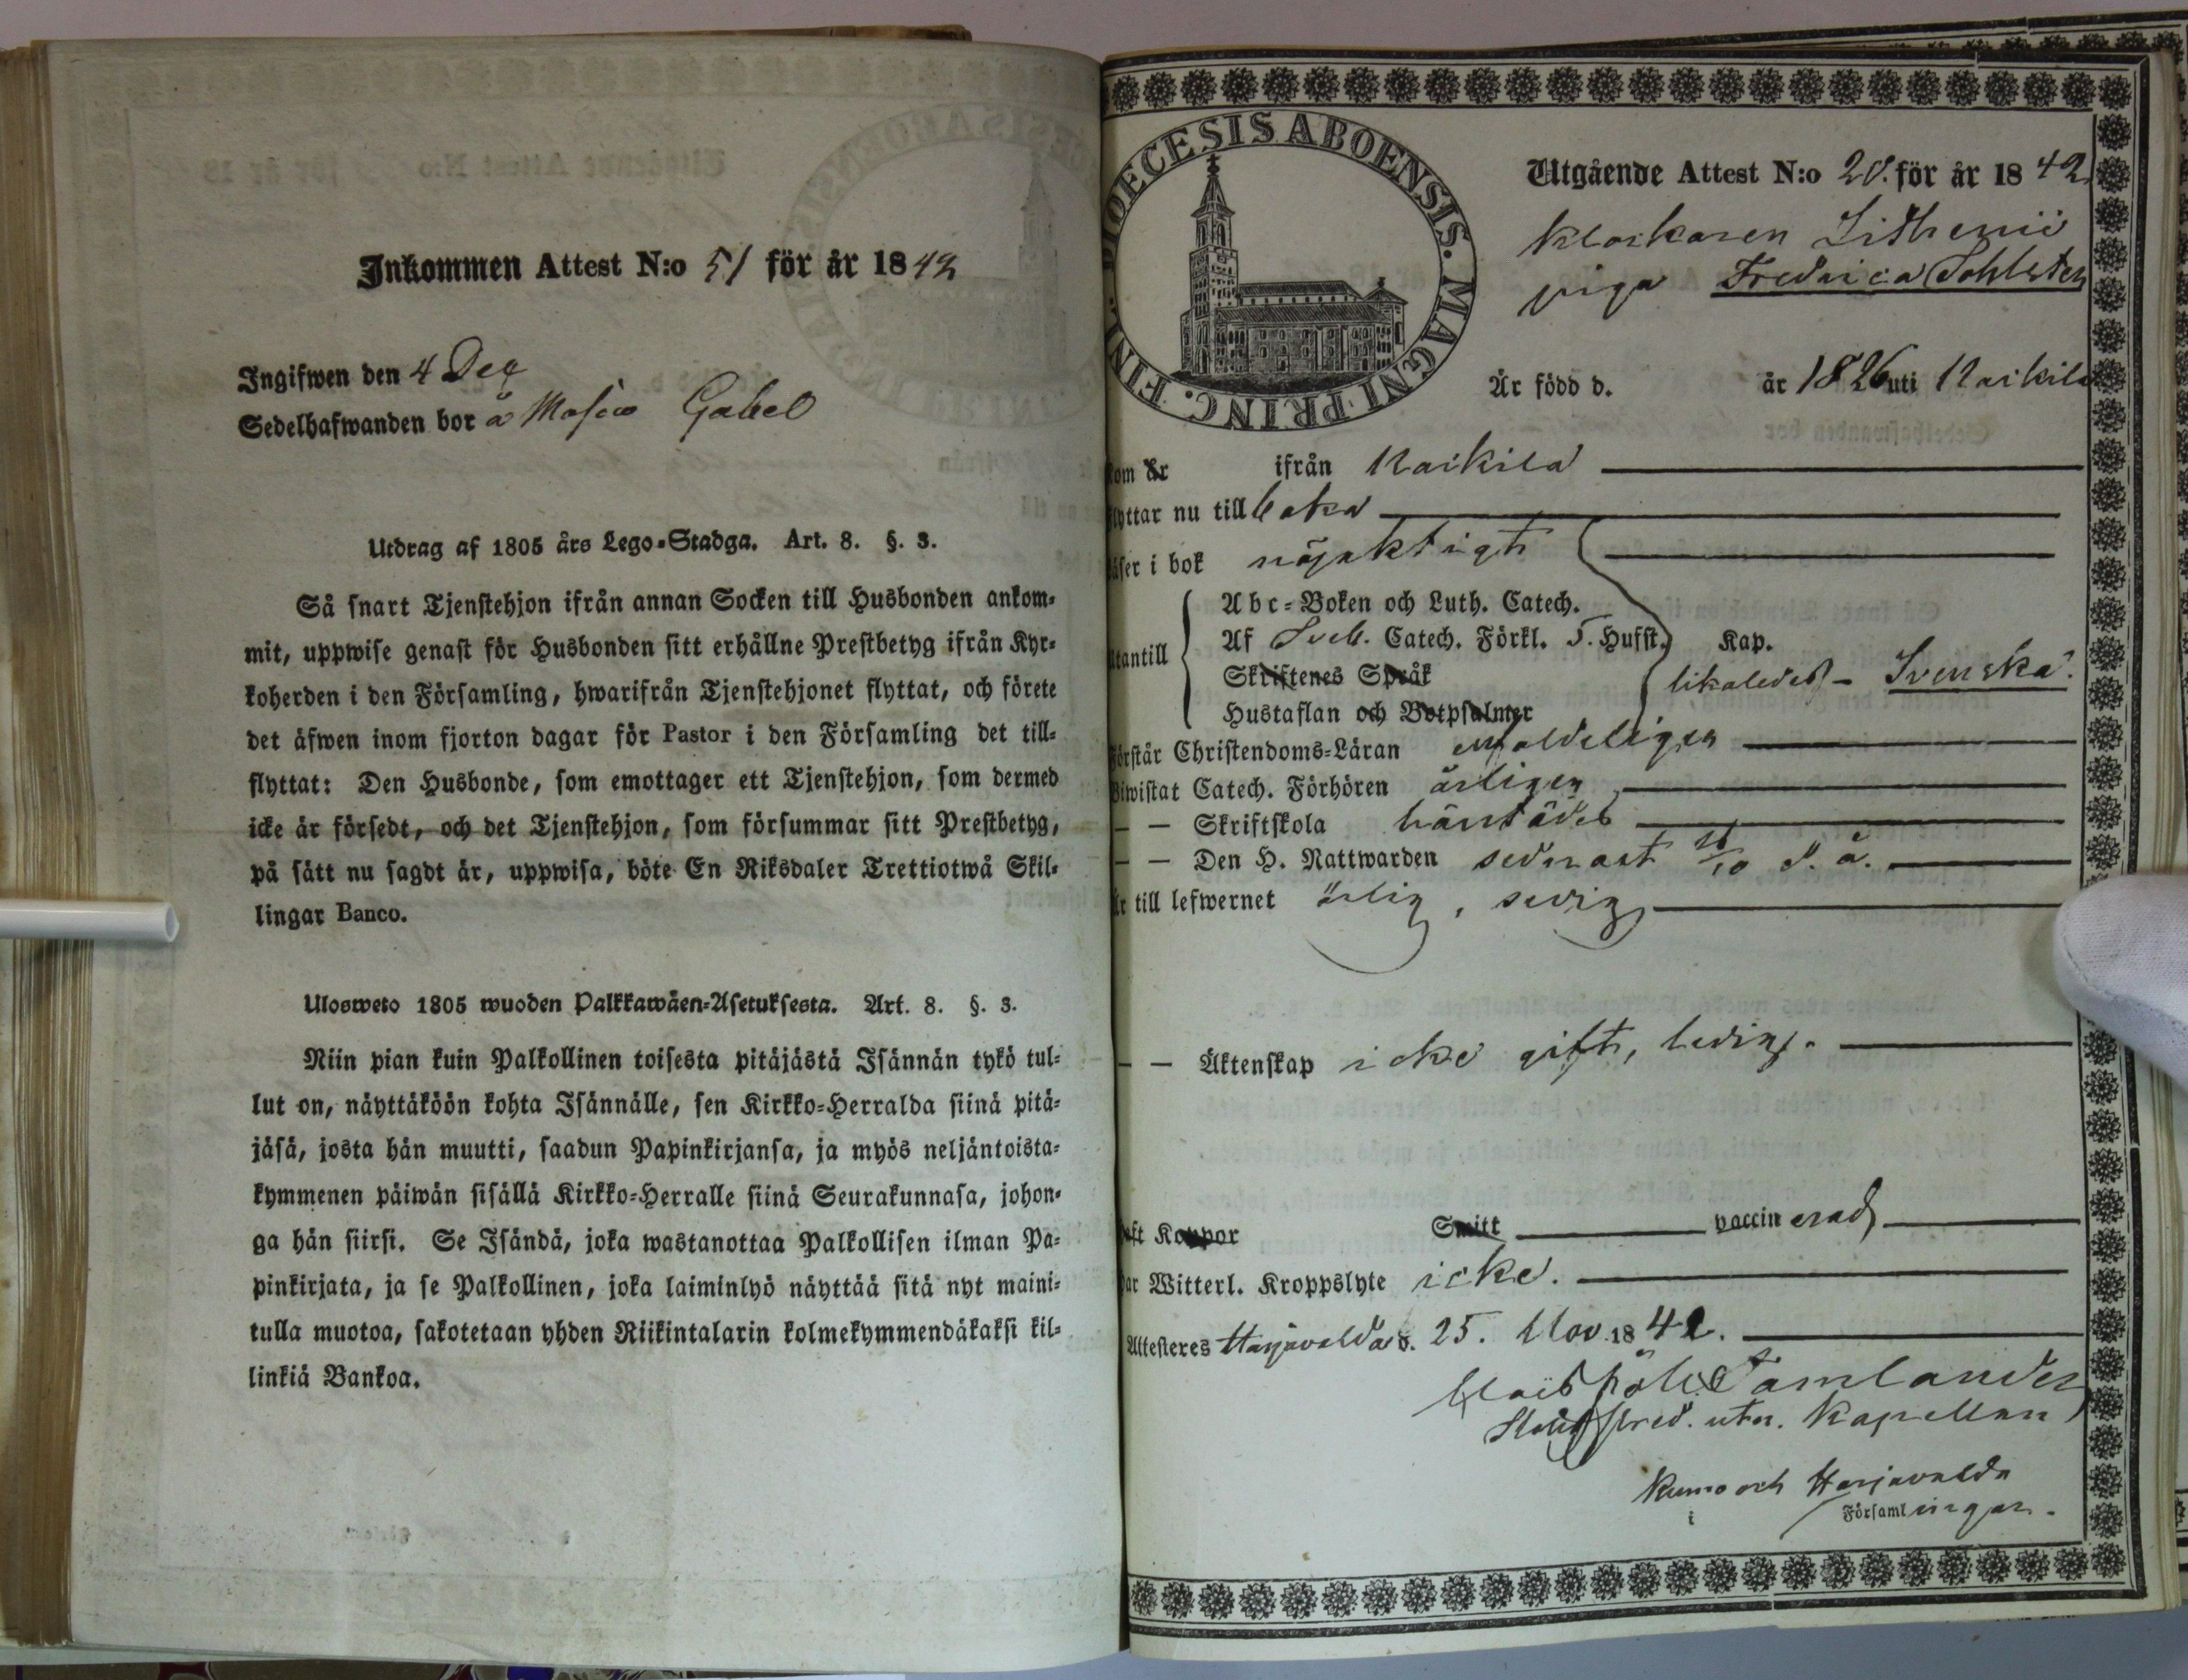 Inkommen Attest N:o 51 för år 1842
Ingifwen den 4 Dec
Sedelhafwanden bor å Masia Gabel
Utdrag af 1805 års Lego-Stadga. Art. 8. §. 3.
Så snart Tjenstehjon ifrån annan Socken till Husbonden ankom-
mit, uppwise genast för Husbonden sitt erhållne Prestbetyg ifrån Kyr-
koherden i den Församling, hwarifrån Tjenstehjonet flyttat, och förete
det äfwen inom fjorton dagar för Pastor i den Församling det till-
flyttat: Den Husbonde, som emottager ett Tjenstehjon, som dermed
icke är försedt, och det Tjenstehjon, som försummar sitt Prestbetyg,
på sätt nu sagdt är, uppwisa, böte En Riksdaler Trettiotwå Skil-
lingar Banco.
Ulosweto 1805 wuoden Palkkawäen-Asetuksesta. Art. 8. §. 3.
Niin pian kuin Palkollinen toisesta pitäjästä Isännän tykö tul-
lut on, näyttäköön kohta Isännälle, sen Kirkko-Herralda siinä pitä-
jäsä, josta hän muutti, saadun Papinkirjansa, ja myös neljäntoista-
kymmenen päiwän sisällä Kirkko-Herralle siinä Seurakunnasa, johon-
ga hän siirsi. Se Isändä, joka wastanottaa Palkollisen ilman Pa-
pinkirjata, ja se Palkollinen, joka laiminlyö näyttää sitä nyt maini-
tulla muotoa, sakotetaan yhden Riikintalarin kolmekymmendäkaksi kil-
linkiä Bankoa.
DIOECESIS ABOENSIS. MAGNI PRINC. FINL.
Utgående Attest N:o 20. för år 1842
Klockaren Lithenii
piga Fredrica Sohlsten
Är född d. år 1826 uti Kaikila
kom år ifrån Kaikila
flyttar nu till baka
läser i bok nöjaktigt
Utantill
Abc-Boken och Luth. Catech.
Af Sveb. Catech. Förkl. 5. Hufst. Kap.
Skriftenes Språk
likaledes - Svenska.
Hustaflan och Botpsalmer
Förstår Christendoms-Läran enfaldeligen
Biwistat Catech. Förhören årligen
— — Skriftskola härstädes
— — Den H. Nattwarden sednast /10 d. å.
Är till lefwernet ärlig, sedig
— — Äktenskap icke gift, ledig.
haft Koppor Smitt vaccinerad
har Witterl. Kroppslyte icke.
Attesteres Harjavalda d. 25. Nov. 1842.
Tamlander
pred. utn. Kapellan
Kumo och Harjavalda
i Församlingar.